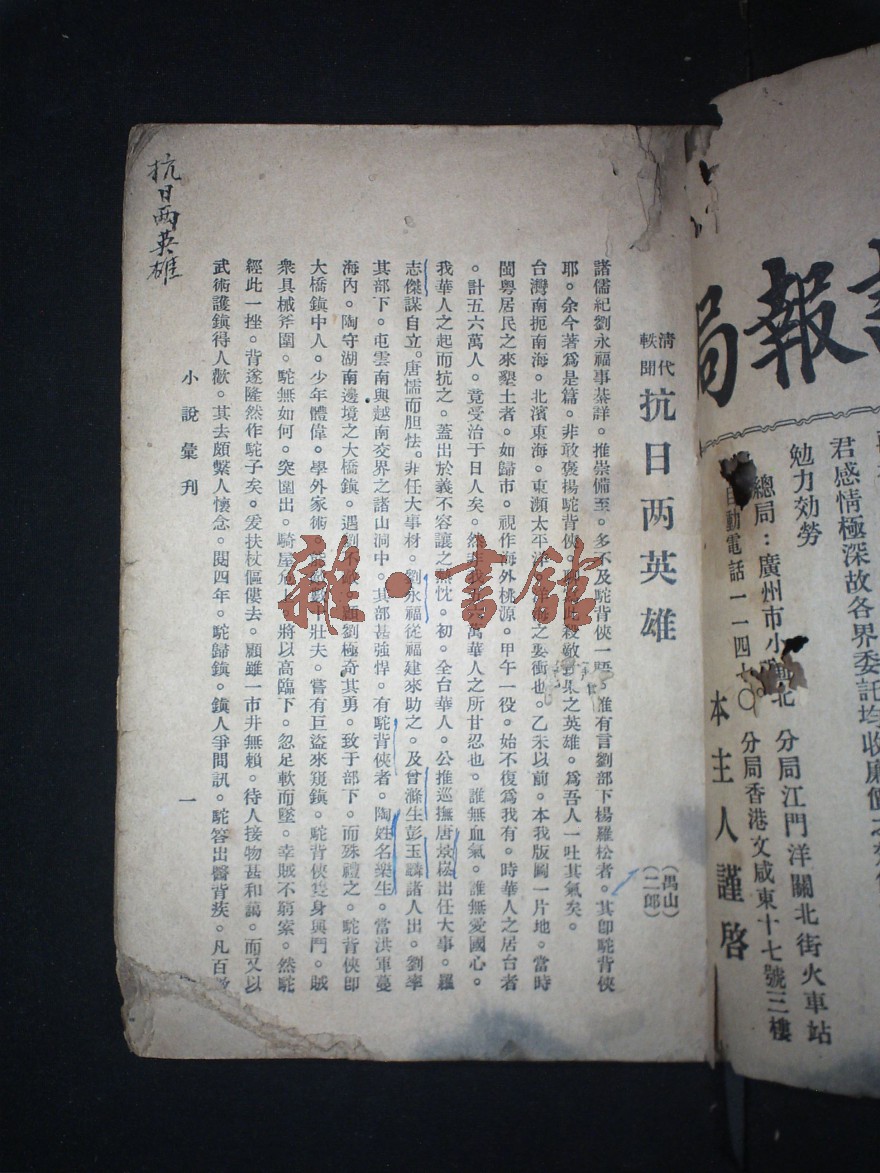 總局：廣州市小北
自動電話一一四七〇
分局江門洋關北街火車站
分局香港文咸東十七號三樓
本主人謹啓
報局
君感情極深故各界委託均收廉價
勉力効勞
清代
軼聞
抗日两英雄
（禺山）
（二郎）
諸儒紀劉永福事綦詳。推崇備至。多不及駝背俠一語。惟有言劉部下楊羅松者。其即駝背俠
耶。余今著爲是篇。非敢褒揚駝背俠。殺敵致果之英雄。爲吾人一吐其氣矣。
台灣南扼南海。北濱東海。東瀕太平洋。要衝也。乙未以前。本我版圖一片地。當時
閩粤居民之來墾土者。如歸市。視作海外桃源。甲午一役。始不復爲我有。時華人之居台者
。計五六萬人。竟受治于日人矣。然非我五六萬華人之所甘忍也。誰無血氣。誰無愛國心。
我華人之起而抗之。蓋出於義不容讓之熱忱。初。全台華人。公推巡撫唐景崧出任大事。羅
志傑謀自立。唐儒而胆怯。非任大事材。劉永福從福建來助之。及曾滌生彭玉麟諸人出。劉率
其部下。屯雲南與越南交界之諸山洞中。其部甚強悍。有駝背俠者。陶姓名樂生。當洪軍蔓
海內。陶守湖南邊境之大橋鎮。遇劉劉極奇其勇。致于部下。而殊禮之。駝背俠即
大橋鎮中人。少年體偉。學外家術。壯夫。嘗有巨盜來窺鎮。駝背俠隻身與鬥。賊
衆具械斧圍。駝無如何。突圍出。騎屋危上。將以高臨下。忽足軟而墜。幸賊不窮索。然駝
經此一挫。背遂隆然作駝子矣。爰扶杖傴僂去。顧雖一市井無賴。待人接物甚和藹。而又以
武術護鎮得人歡。其去頗繫人懷念。閱四年。駝歸鎮。鎮人爭問訊。駝答出醫背疾。凡百
小說彙刊
一
抗日两英雄
雜·書館